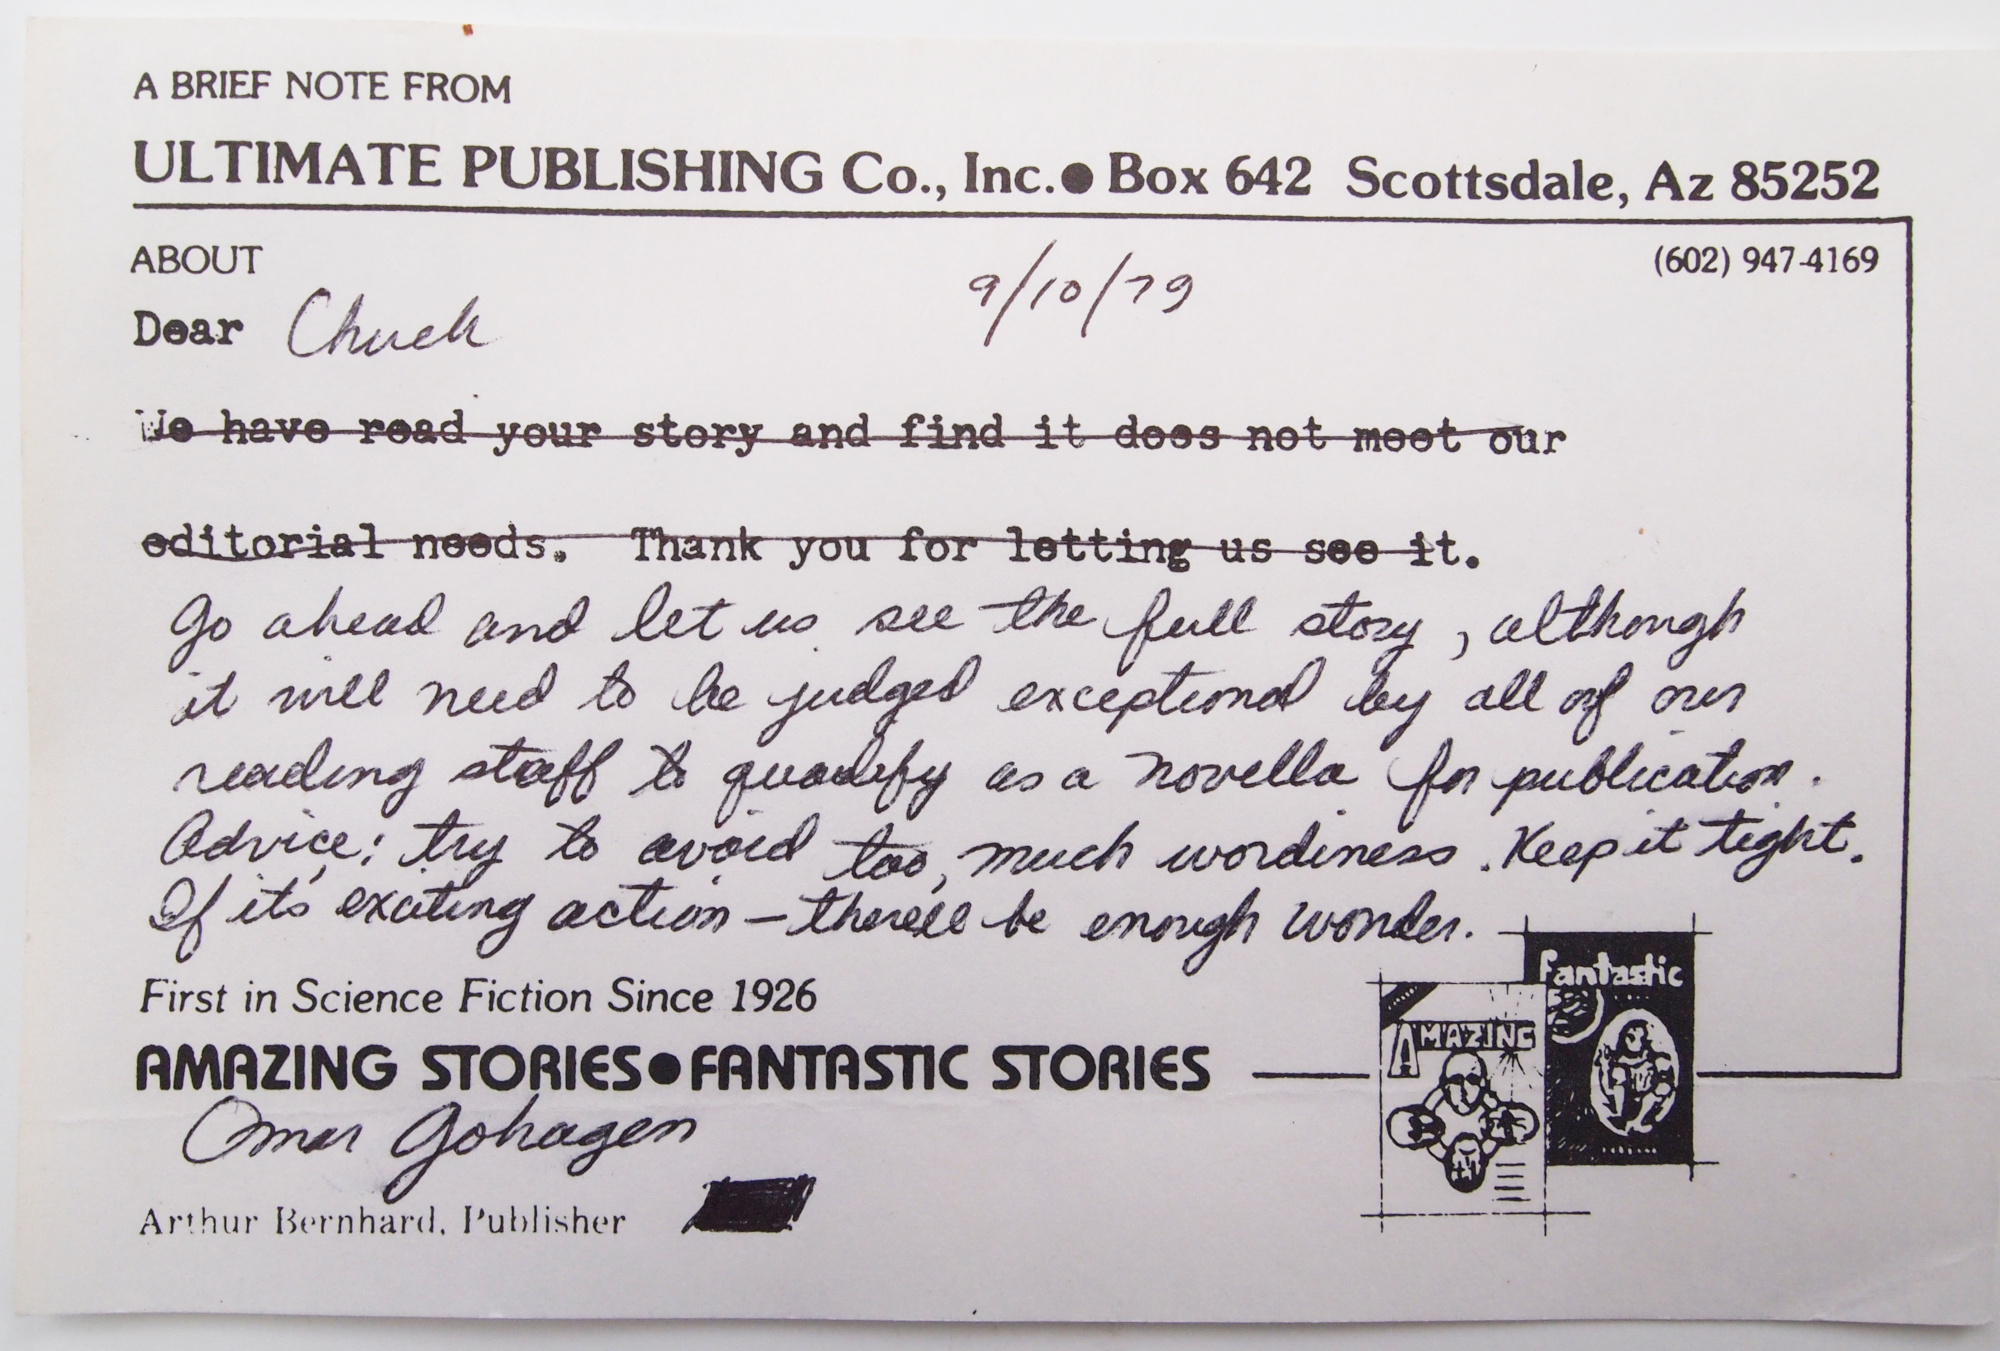 A BRIEF NOTE FROM
ULTIMATE PUBLISHING Co., Inc.● Box 642 Scottsdale, Az 85252
ABOUT
(602) 947-4169
9/10/79
Dear Chuck
We have read your story and find it does not meet our
editorial needs. Thank you for letting us see it.
Go ahead and let us see the full story, although
it will need to be judged exceptional by all of our
reading staff to qualify as a novella for publication.
Advice: try to avoid too, much wordiness. Keep it tight.
If it's exciting action — there'll be enough wonder.
First in Science Fiction Since 1926
AMAZING STORIES●FANTASTIC STORIES
Fantastic
AMAZING
Omar Gohagen
Arthur Bernhard, Publisher